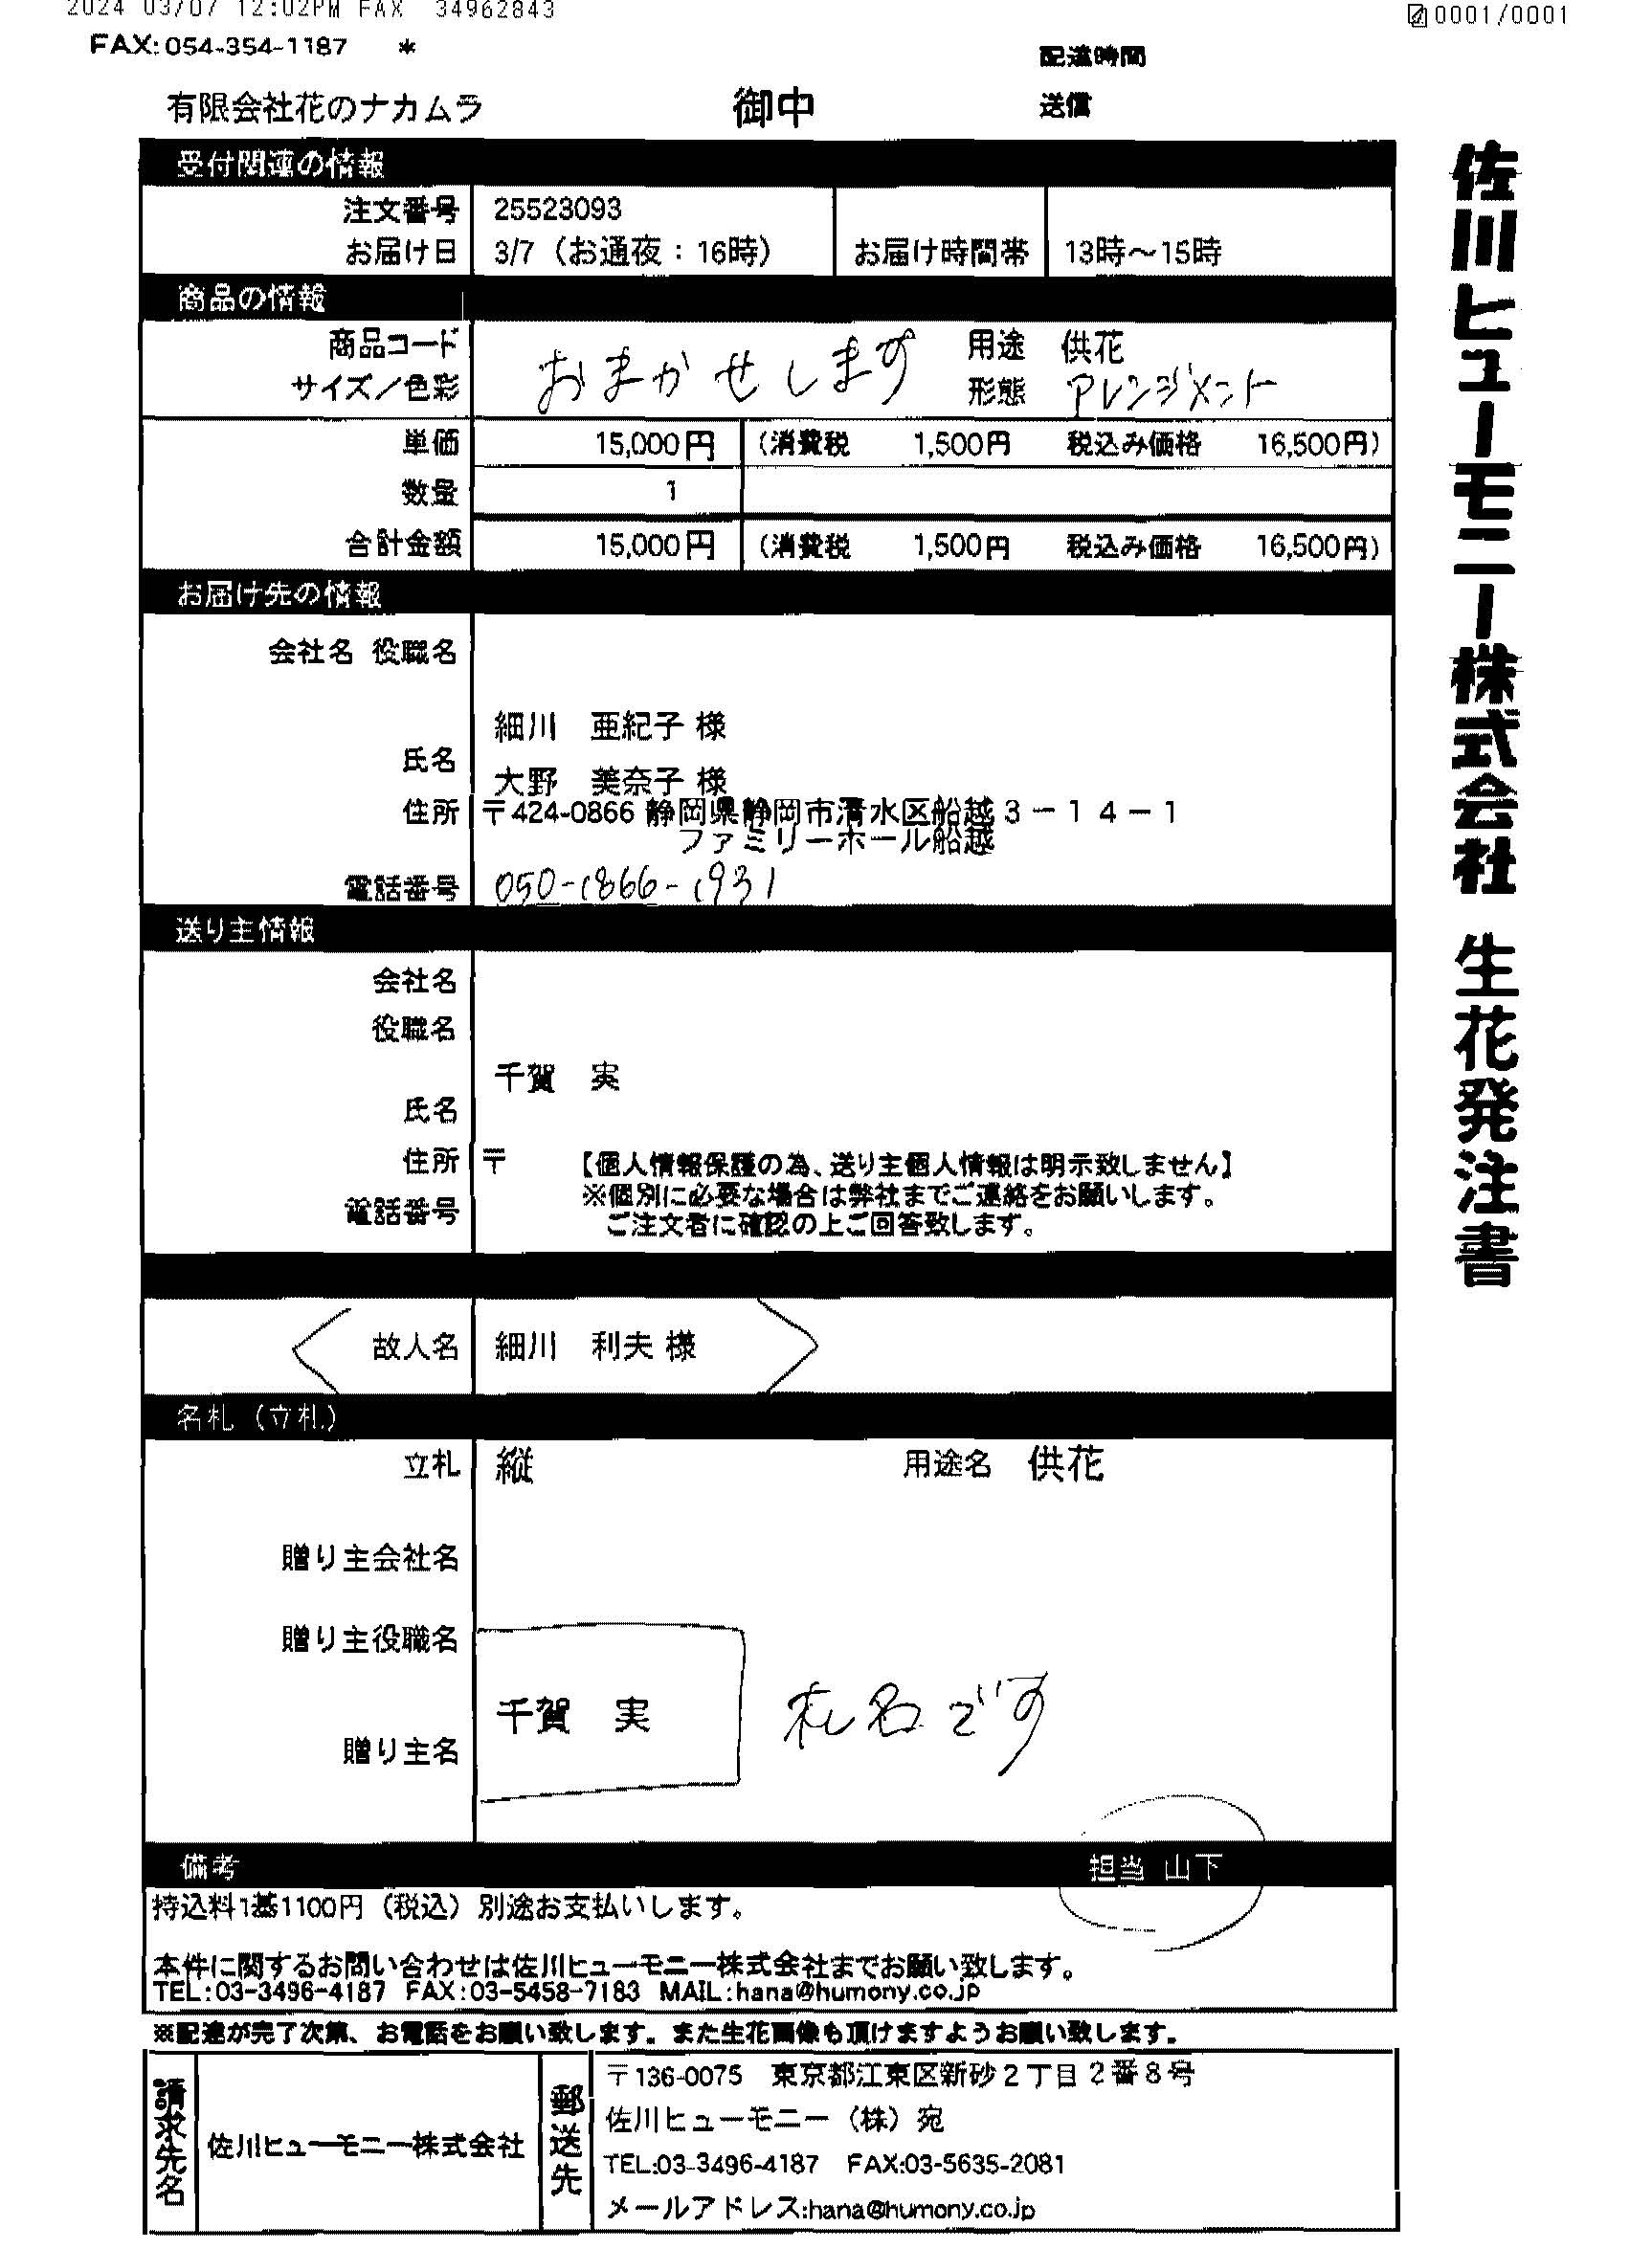 2024 03/07 12:02PM FAX 34962843
0001/0001
FAX:054-354-1187 *
配達時間
有限会社花のナカムラ 御中 送信
佐川ヒューモニー株式会社 生花発注書
受付関連の情報
注文番号 25523093
お届け日 3/7（お通夜：16時） お届け時間帯 13時～15時
商品の情報
商品コード おまかせします 用途 供花
サイズ／色彩 形態 アレンジメント
単価 15,000円 （消費税 1,500円 税込み価格 16,500円）
数量 1
合計金額 15,000円 （消費税 1,500円 税込み価格 16,500円）
お届け先の情報
会社名 役職名
細川 亜紀子 様
氏名
大野 美奈子 様
住所 〒424-0866 静岡県静岡市清水区船越３－１４－１
ファミリーホール船越
電話番号 050-1866-1931
送り主情報
会社名
役職名
千賀 実
氏名
住所 〒 【個人情報保護の為、送り主個人情報は明示致しません】
※個別に必要な場合は弊社までご連絡をお願いします。
電話番号
ご注文者に確認の上ご回答致します。
故人名 細川 利夫 様
名札（立札）
立札 縦 用途名 供花
贈り主会社名
贈り主役職名
千賀 実 札名です
贈り主名
備考 担当 山下
持込料1基1100円（税込）別途お支払いします。
本件に関するお問い合わせは佐川ヒューモニー株式会社までお願い致します。
TEL:03-3496-4187 FAX:03-5458-7183 MAIL:hana@humony.co.jp
※配達が完了次第、お電話をお願い致します。また生花画像も頂けますようお願い致します。
請求先名 佐川ヒューモニー株式会社 郵送先
〒136-0075 東京都江東区新砂２丁目２番８号
佐川ヒューモニー（株）宛
TEL:03-3496-4187 FAX:03-5635-2081
メールアドレス:hana@humony.co.jp